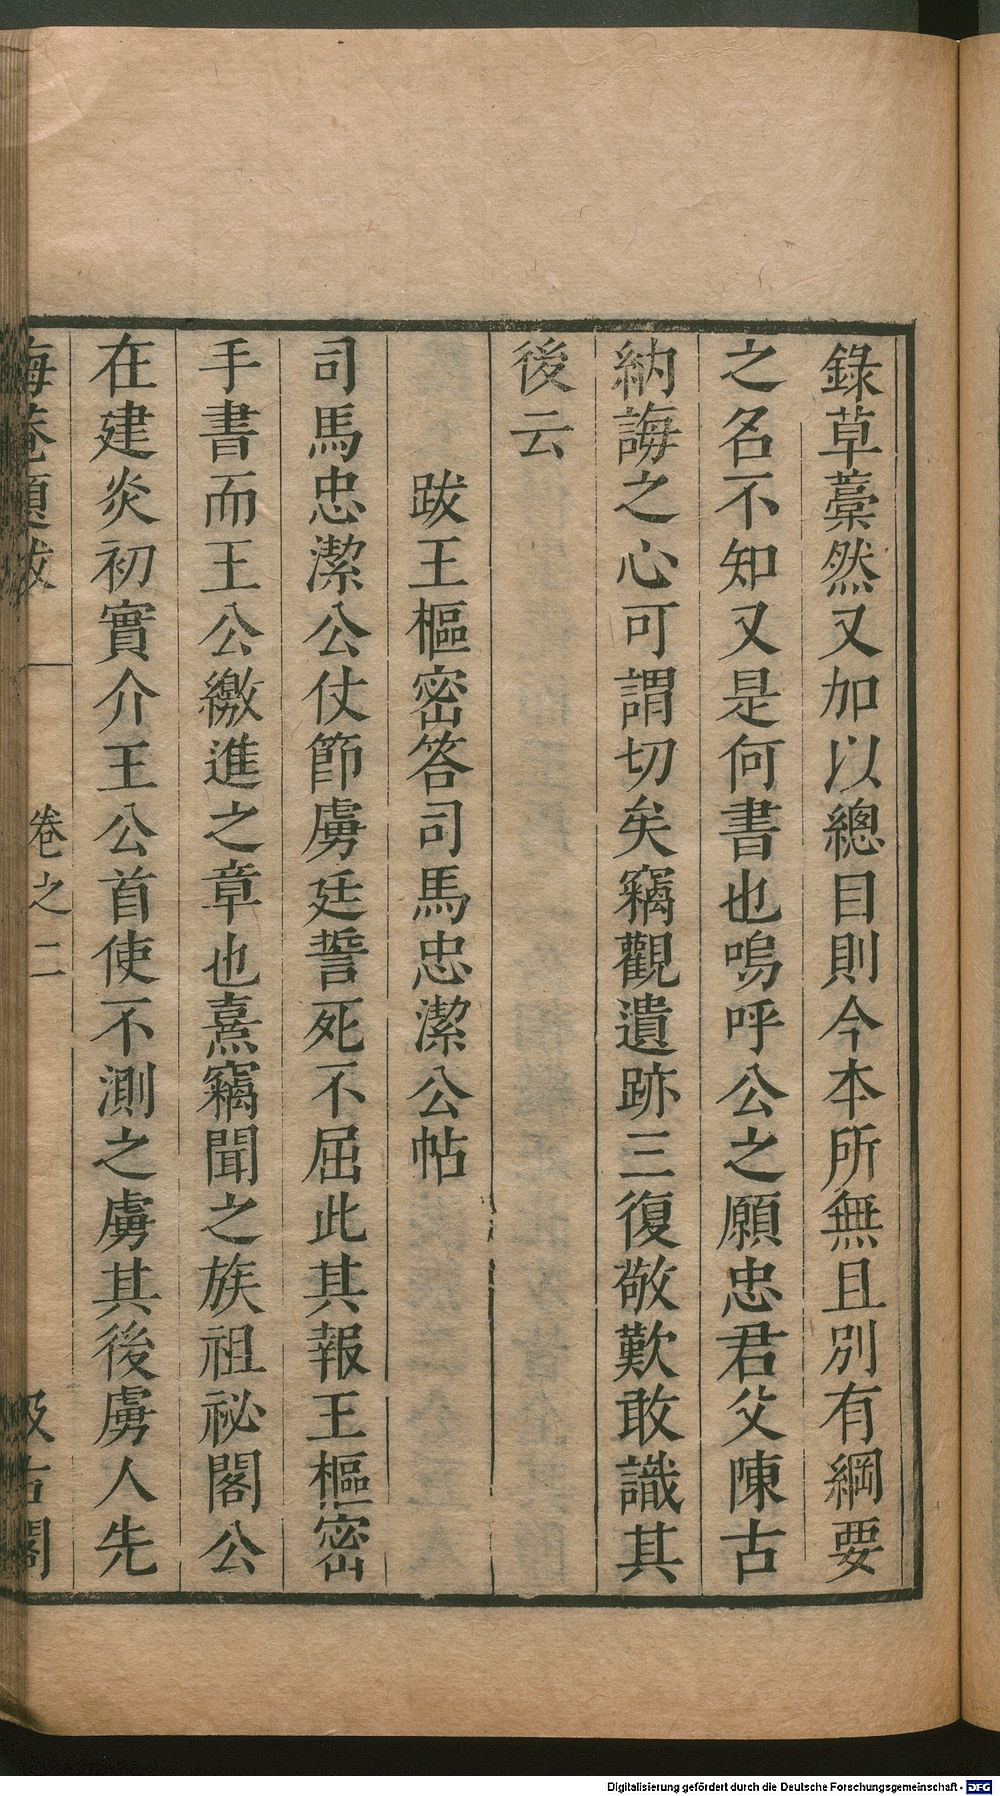 錄草藁然又加以總目則今本所無且別有綱要
之名不知又是何書也嗚呼公之願忠君父陳古
納誨之心可謂切矣竊觀遺跡三復敬歎敢識其
後云
跋王樞密答司馬忠潔公帖
司馬忠潔公仗節虜廷誓死不屈此其報王樞密
手書而王公繳進之章也熹竊聞之族祖祕閣公
在建炎初實介王公首使不測之虜其後虜人先
晦菴題跋 卷之二 汲古閣
Digitalisierung gefördert durch die Deutsche Forschungsgemeinschaft - DFG